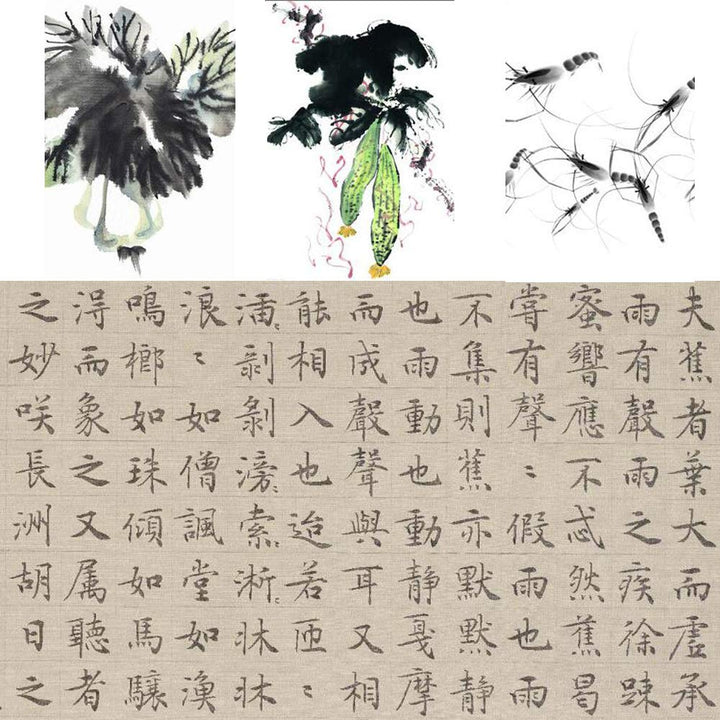 夫蕉者葉大而虛承
雨有聲雨之疾徐踈
蜜響應不忒然蕉曷
甞有聲〻假雨也雨
不集則蕉亦默默靜
也雨動也動靜戛摩
而成聲聲與耳又相
能相入也迨若匝〻
剝剝滂〻索〻淅〻牀牀
浪〻如僧諷堂如漁
鳴榔如珠傾如馬驤
淂而象之又属聽者
之妙咲長洲胡日之